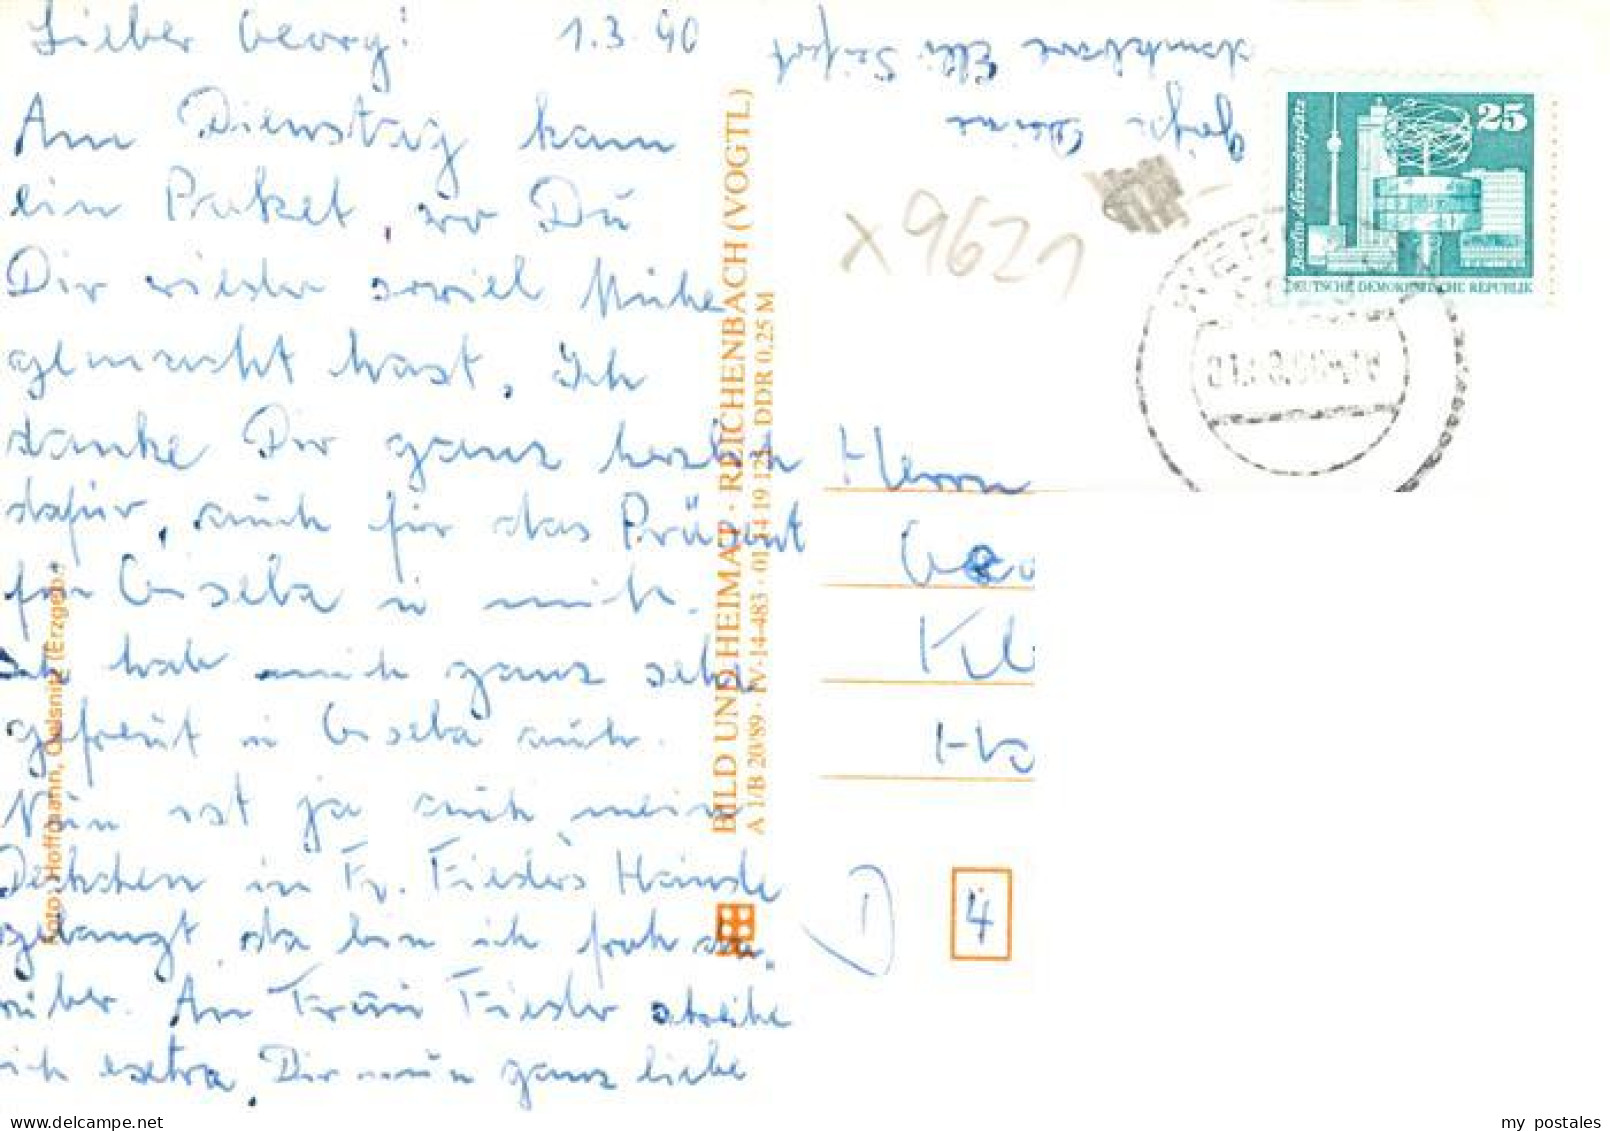 Lieber Georg! 1.3.90
Am Dienstag kam
ein Paket, wo Du
Dir wieder soviel Mühe
gemacht hast. Ich
danke Dir ganz herzlich
dafür, auch für das Präsent
für Gisela u mich.
Ich hab mich ganz sehr
gefreut u Gisela auch.
Nun ist ja auch mein
Deckchen in Fr. Fiedlers Hände
gelangt, da bin ich froh da-
rüber. An Frau Fiedler schreibe
ich extra. Dir nun ganz liebe
Grüße Deine
dankbare Elli
Foto: Hoffmann, Oelsnitz (Erzgeb.)
BILD UND HEIMAT · REICHENBACH (VOGTL)
A 1/B 20/89 · IV-14-483 · 01 14 19 125 DDR 0,25 M
x9621
25
Berlin, Alexanderplatz
DEUTSCHE DEMOKRATISCHE REPUBLIK
Herrn
Kl
4
my postales
www.delcampe.net